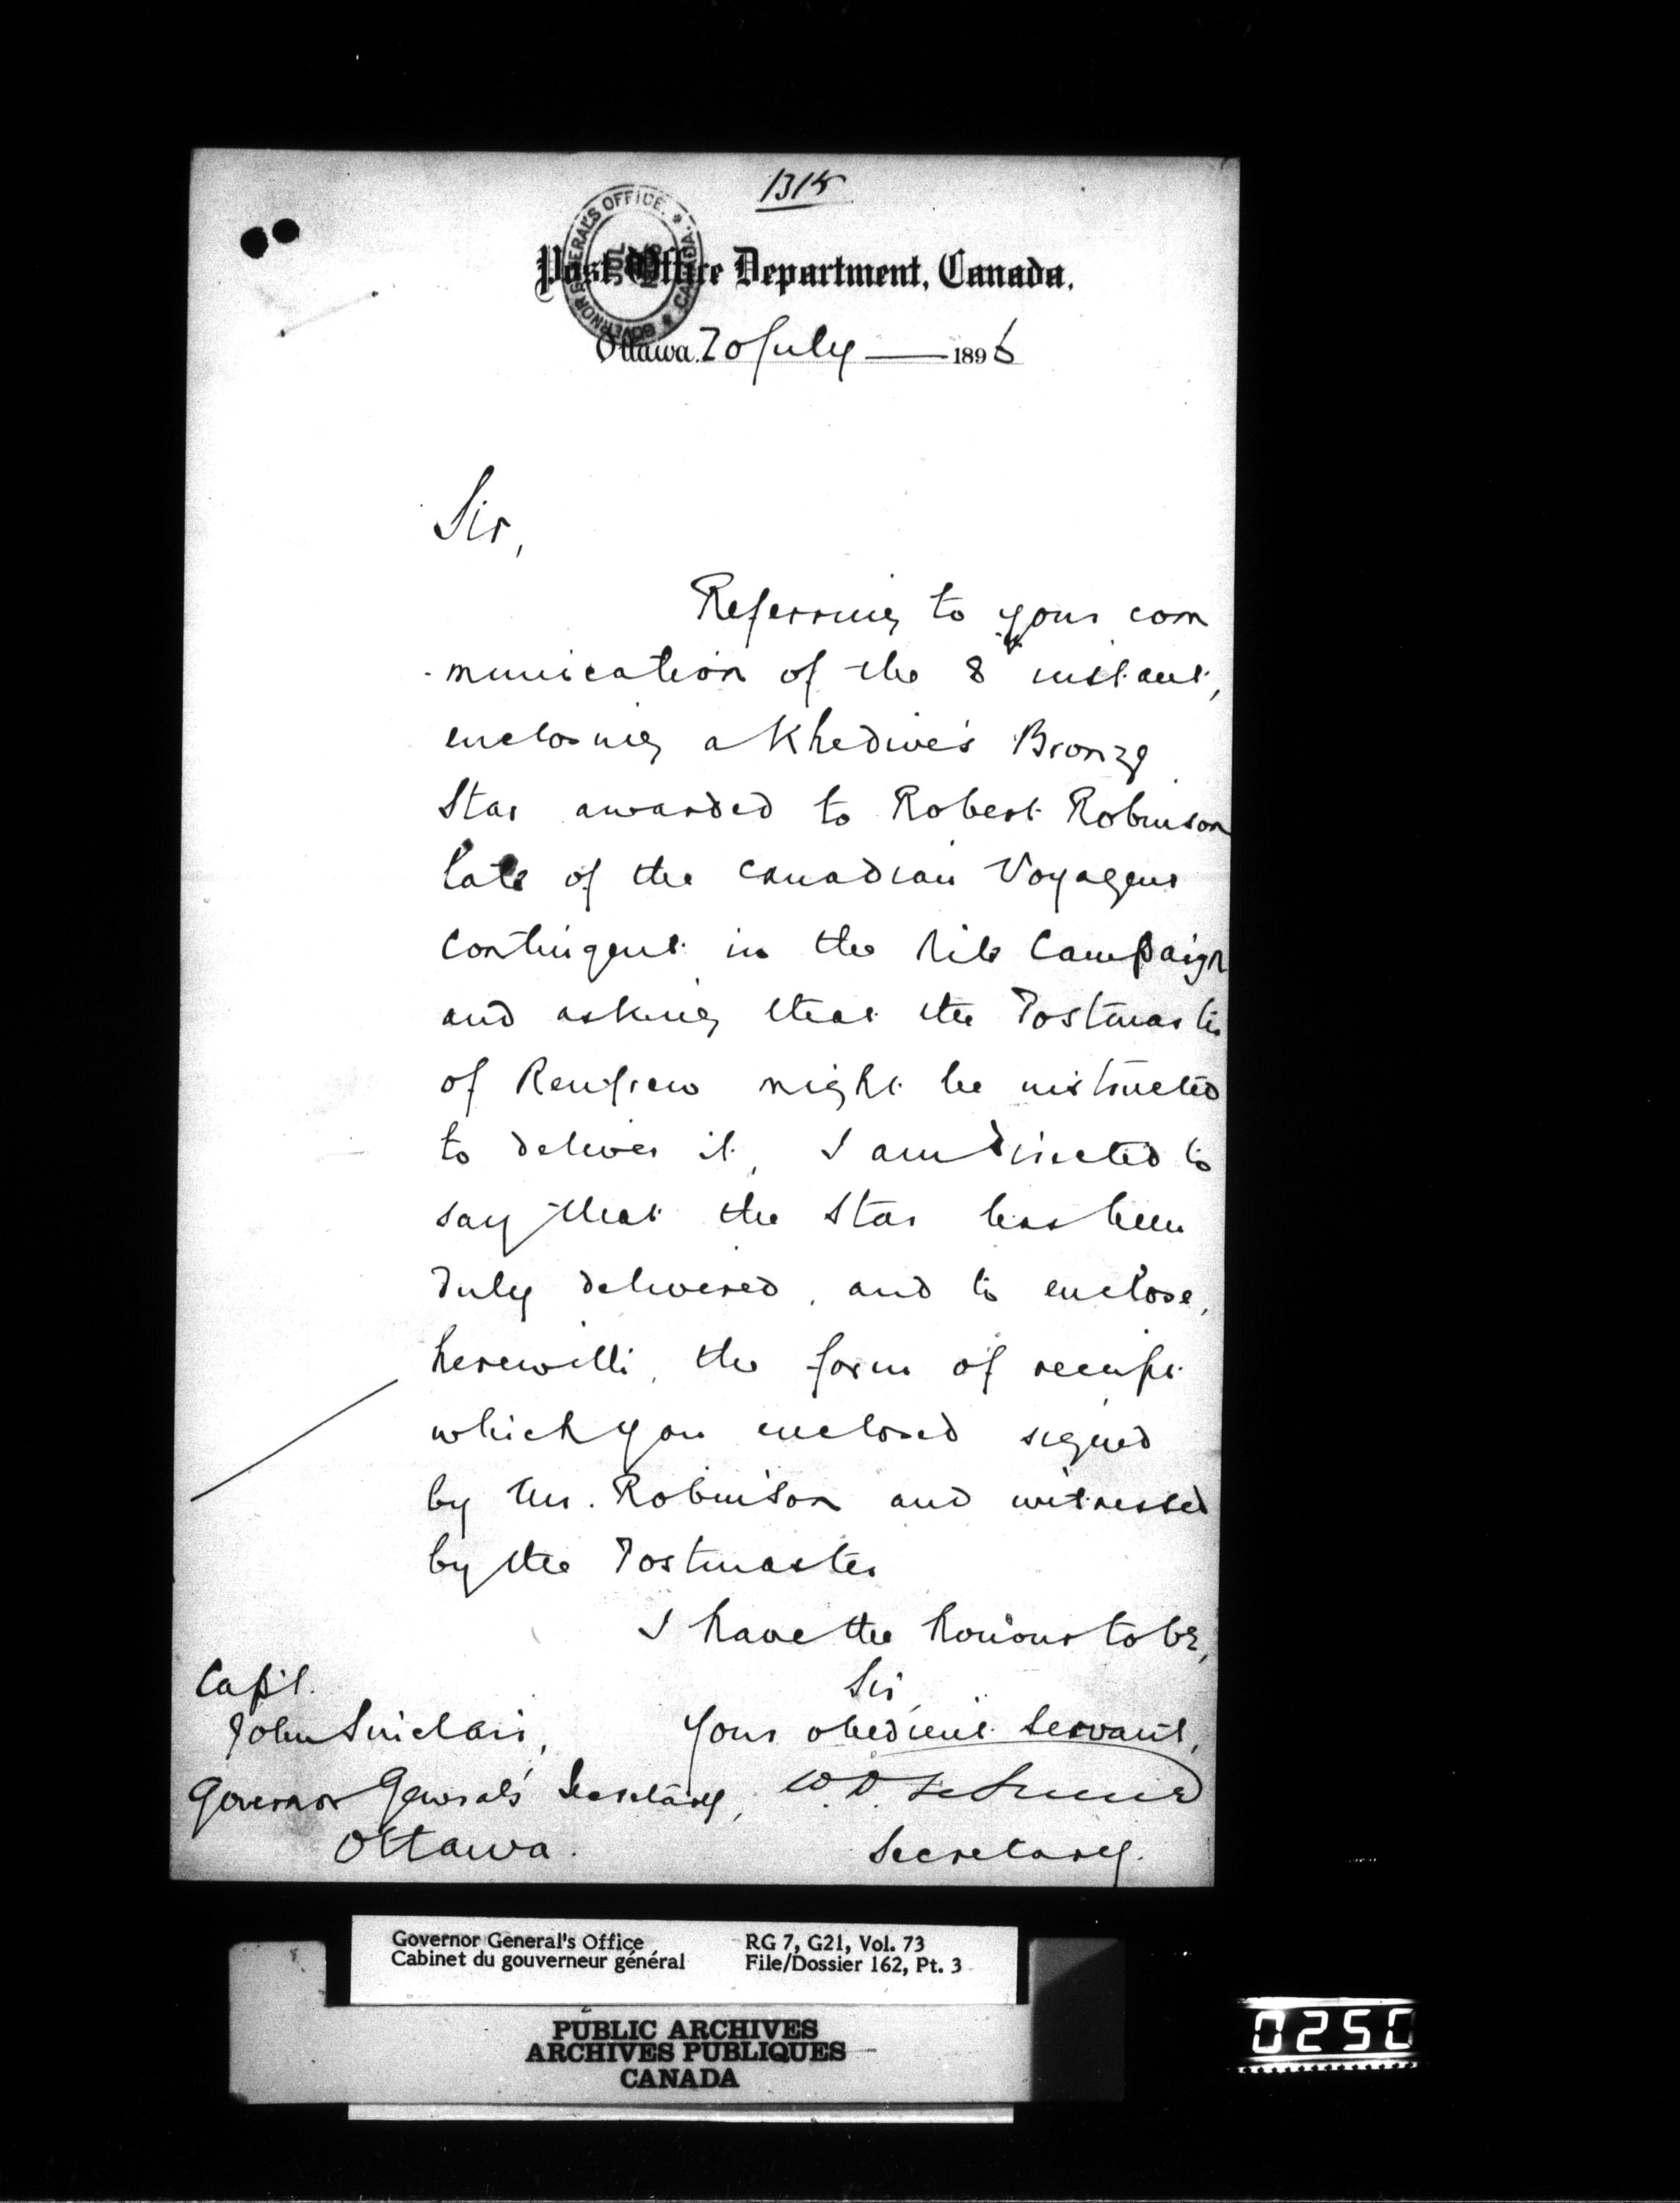 1315
GOVERNOR GENERAL'S OFFICE. * CANADA. *
JUL
Post Office Department, Canada.
Ottawa. 20 July 1896
Sir,
Referring to your com
-munication of the 8th instant,
enclosing a Khedive's Bronze
Star awarded to Robert Robinson
late of the Canadian Voyageur
Contingent in the Nile Campaign
and asking that the Postmaster
of Renfrew might be instructed
to deliver it, I am directed to
say that the Star has been
duly delivered, and to enclose,
herewith, the form of receipt
which you enclosed signed
by Mr. Robinson and witnessed
by the Postmaster
I have the honour to be,
Sir,
Your obedient servant,
W. D.
Secretary.
Capt.
John Sinclair,
Governor General's Secretary,
Ottawa.
Governor General's Office
Cabinet du gouverneur général
RG 7, G21, Vol. 73
File/Dossier 162, Pt. 3
PUBLIC ARCHIVES
ARCHIVES PUBLIQUES
CANADA
0250